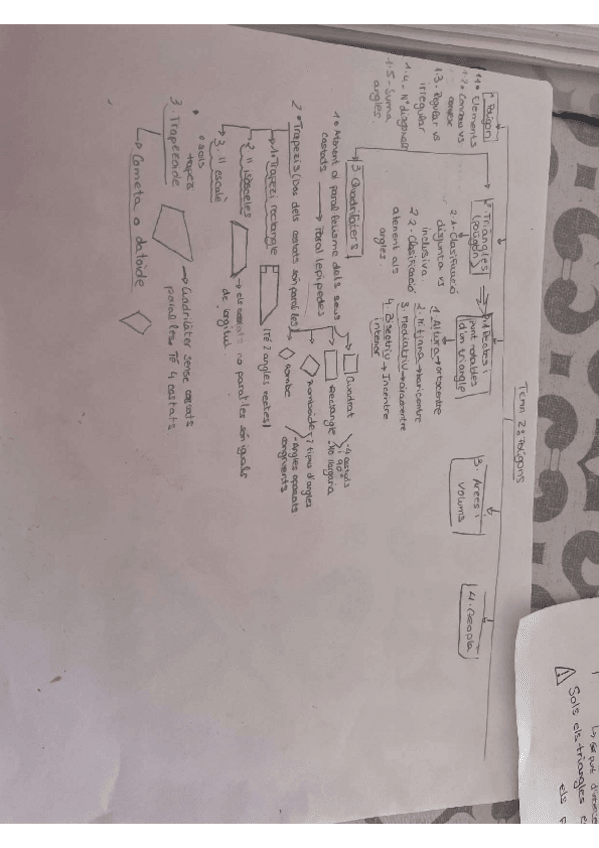 Tema 2: Polígons
1. Polígon
1.1. Elements
1.2. Concavo vs
convexe
1.3. Regular vs
irregular
1.4. Nº diagonals
1.5. Suma
angles
2. Triangles
(polígon)
2.1. Clasificació
disjunta vs
inclusiva.
2.2. Clasificació
atenent als
angles.
Rectes i
punt notables
d'un triangle
1. Altura → ortocentre
2. Mitjana → baricentre
3. Mediatriu → circumcentre
4. Bisectriu → Incentre
interior
3. Arees i
volums
4. Geopla
3 Quadrilàters
1. Atenent al paral·lelisme dels seus
costats → Paral·lepípedes
Quadrat
4 costats
i 90º
Rectangle
Romboide
Rombe
Angles oposats
congruents
2. Trapezis (Dos dels costats són paral·lels)
1. Trapezi rectangle
(Té 2 angles rectes)
2. 11 Isósceles
→ els costats no paral·leles són iguals
de longitud.
3. 11 escalè
3. Trapezoide
→ Quadrilàter sense costats
paral·leles Té 4 costats
↳ Cometa o deltoide
⚠ Sols els triangles
els